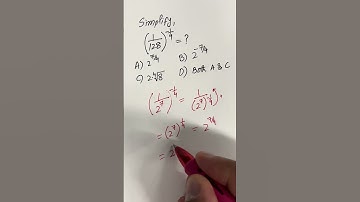 Simplify,
(1/128)^(-1/4) = ?
A) 2^(7/4) B) 2^(-7/4)
C) 2 ∜8 D) Both A & C
(1/2^7)^(-1/4) = 1/(2^7)^(-1/4)
= (2^7)^(1/4) = 2^(7/4)
= 2